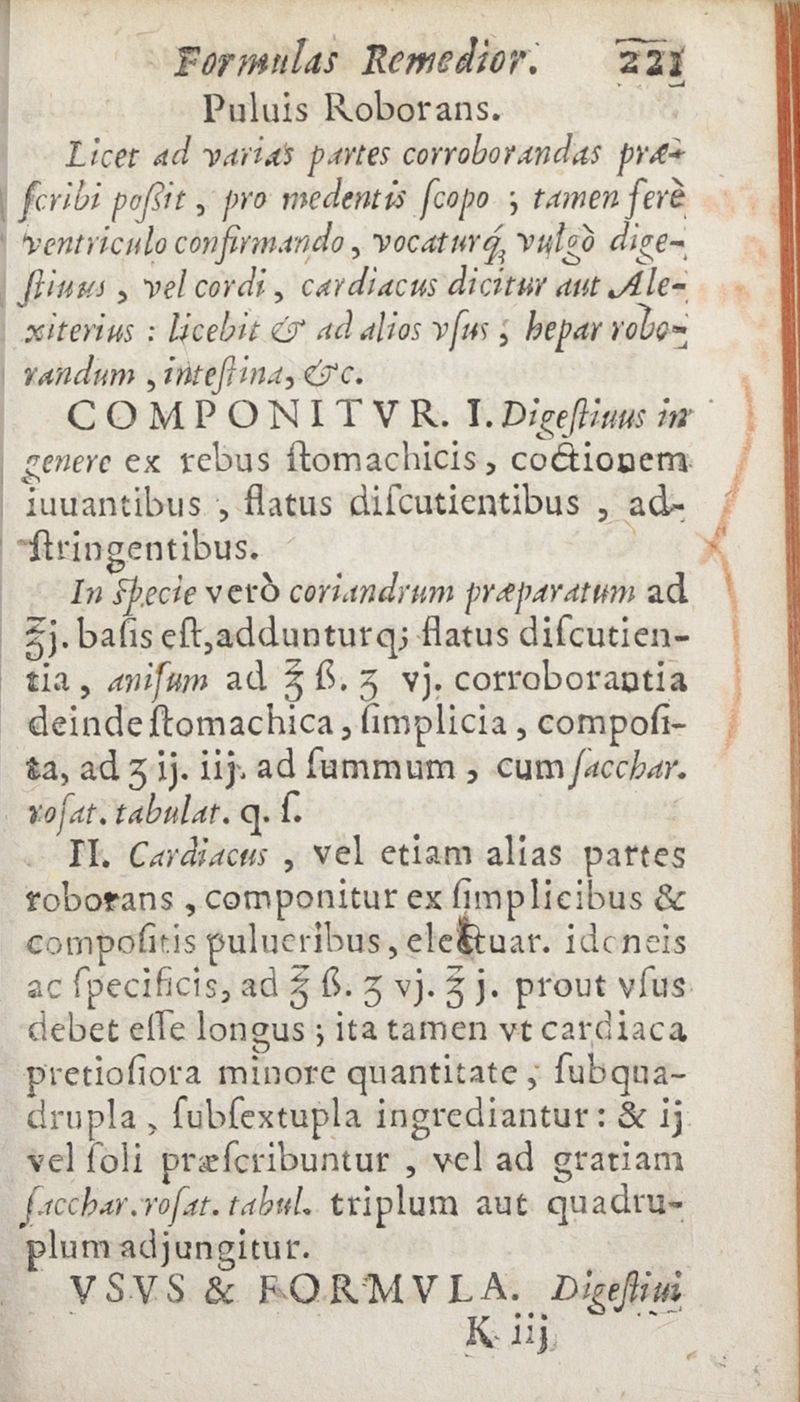 Formulas Remedior. 221
Puluis Roborans.
Licet ad varias partes corroborandas præ-
ſcribi poſsit, pro medentis ſcopo ; tamen ferè
ventriculo confirmando, vocaturq́; vulgò dige-
ſtiuus, vel cordi, cardiacus dicitur aut Ale-
xiterius : licebit & ad alios vſus, hepar robo-
randum, inteſtina, &c.
COMPONITVR. I. Digeſtiuus in
genere ex rebus ſtomachicis, coctionem
iuuantibus, flatus diſcutientibus, ad-
ſtringentibus.
In ſpecie verò coriandrum præparatum ad
℥j. baſis eſt, addunturq; flatus diſcutien-
tia, aniſum ad ℥ ß. ʒ vj. corroborantia
deinde ſtomachica, ſimplicia, compoſi-
ta, ad ʒ ij. iij. ad ſummum, cum ſacchar.
roſat. tabulat. q. ſ.
II. Cardiacus, vel etiam alias partes
roborans, componitur ex ſimplicibus &
compoſitis pulueribus, electuar. idoneis
ac ſpecificis, ad ℥ ß. ʒ vj. ℥ j. prout vſus
debet eſſe longus ; ita tamen vt cardiaca
pretioſiora minore quantitate, ſubqua-
drupla, ſubſextupla ingrediantur : & ij
vel ſoli præſcribuntur, vel ad gratiam
ſacchar. roſat. tabul. triplum aut quadru-
plum adjungitur.
VSVS & FORMVLA. Digeſtiui
K iij